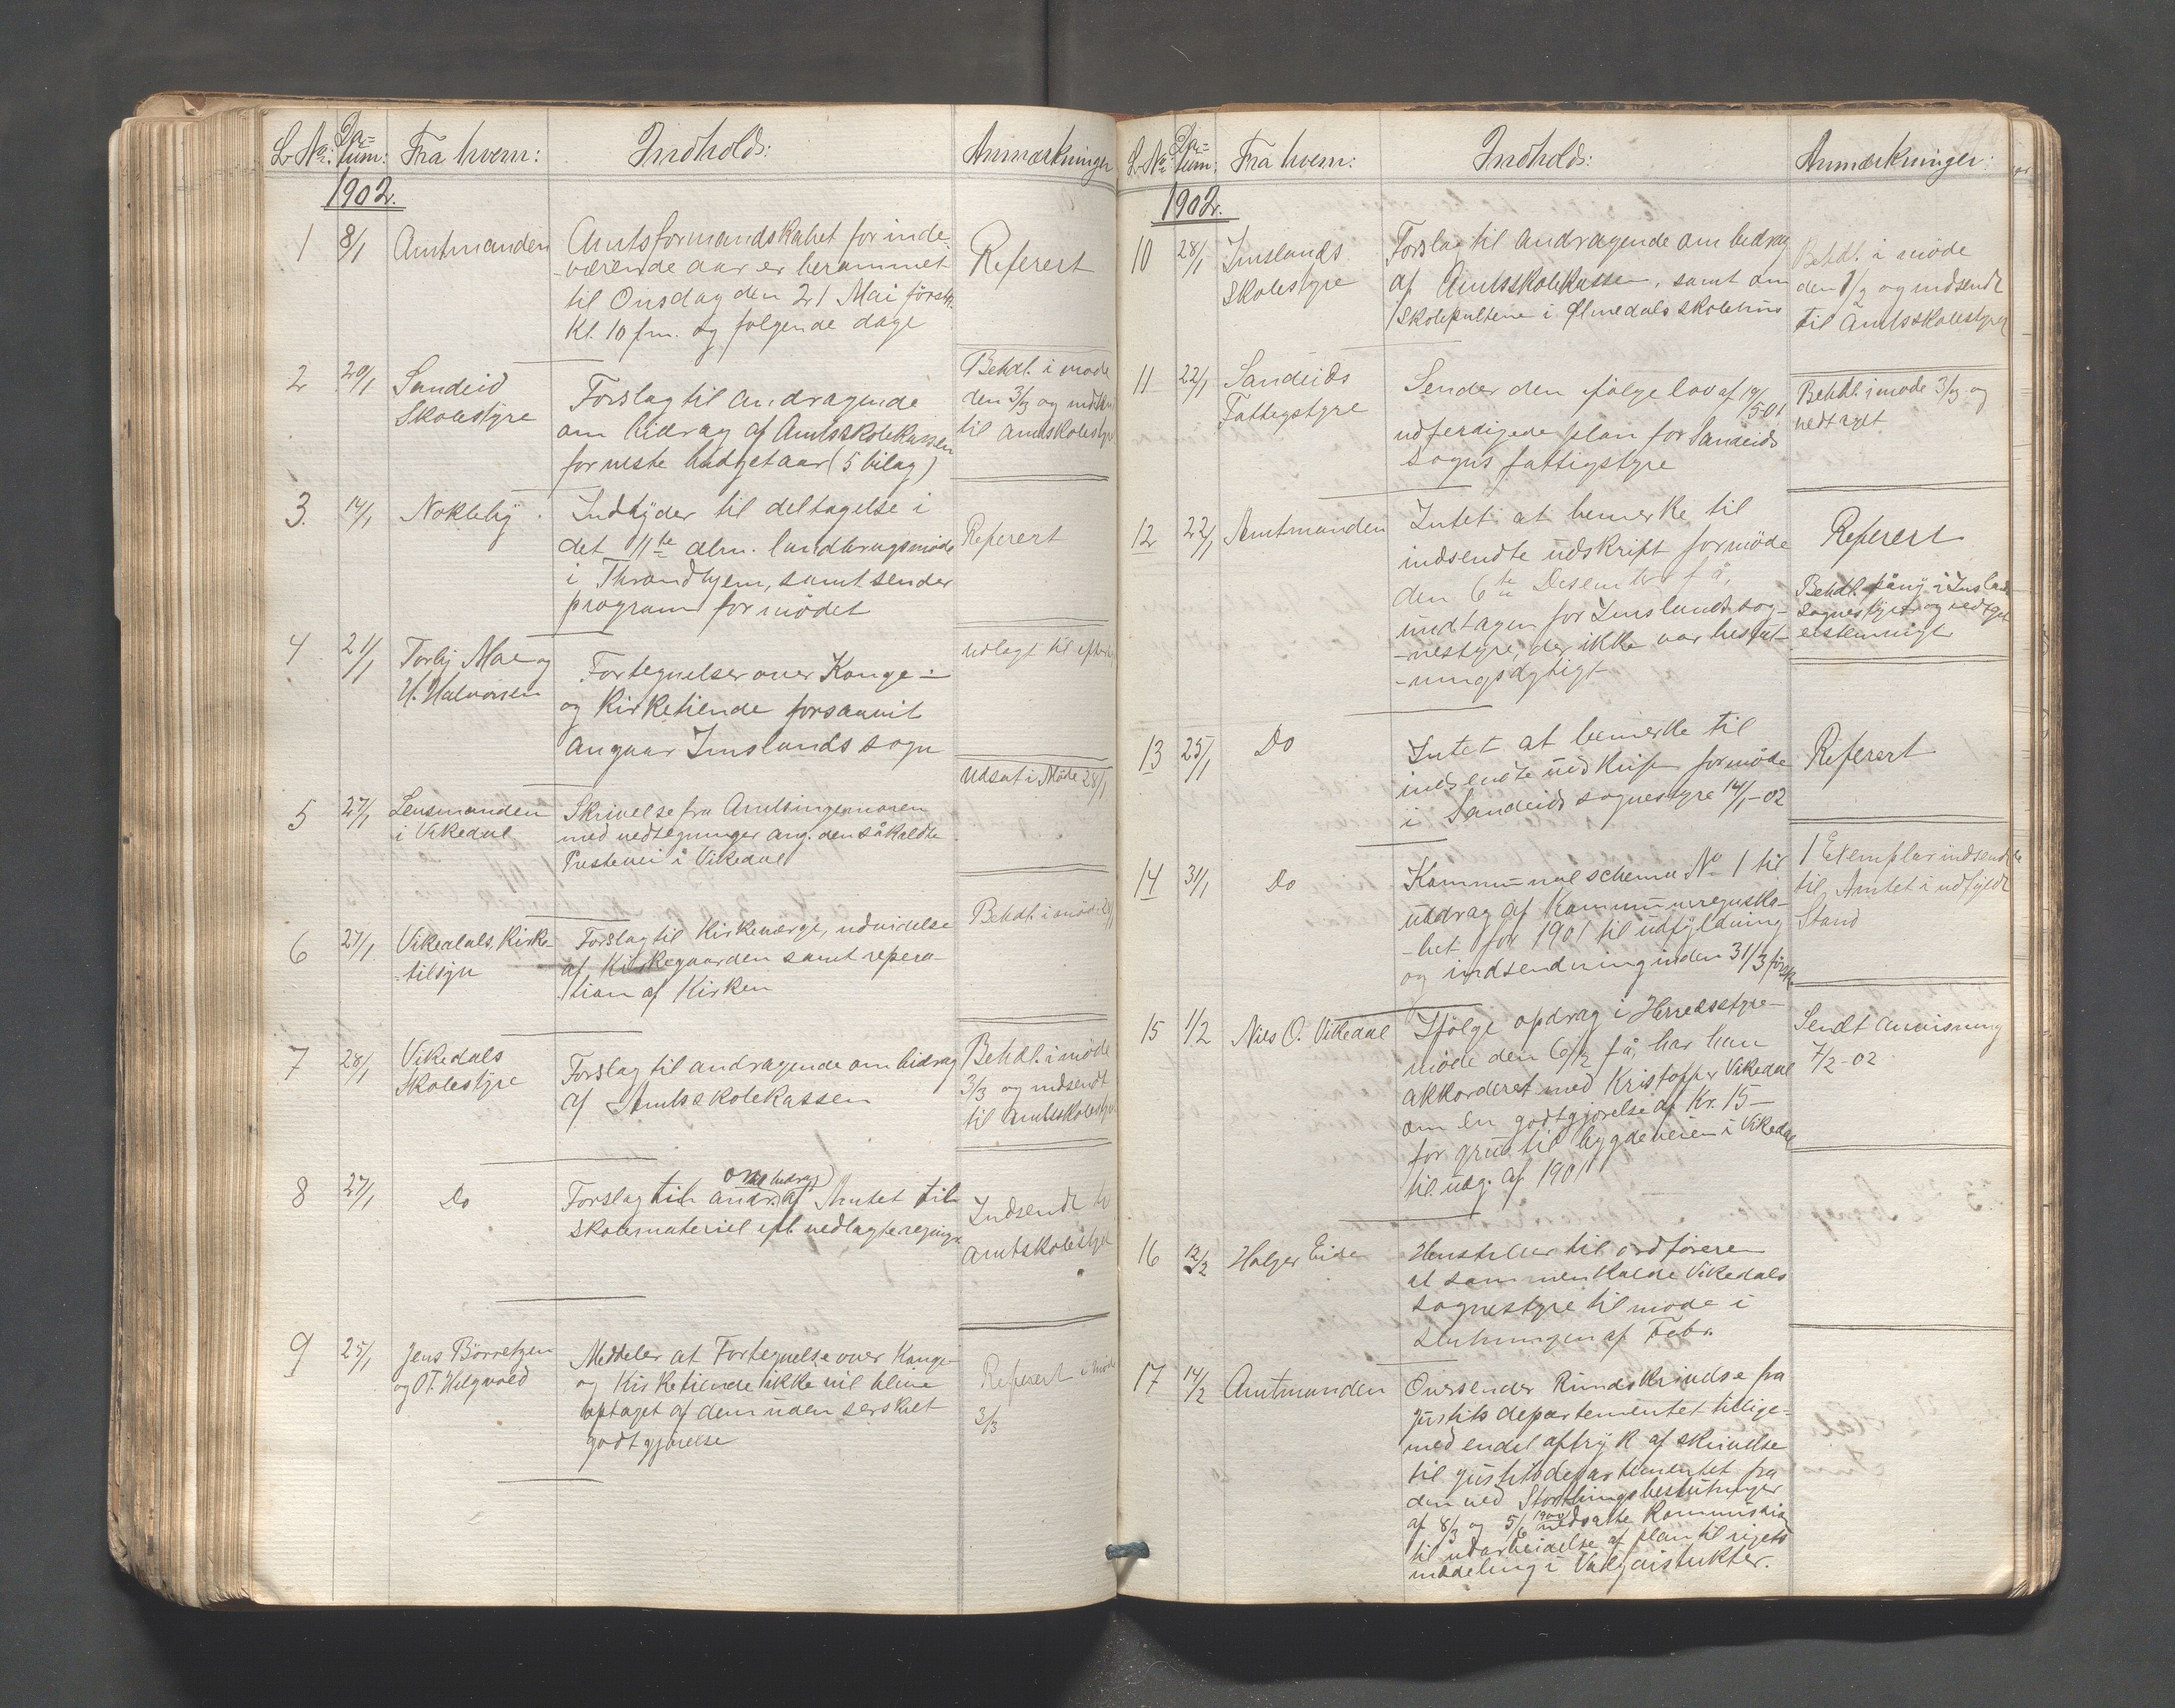 L. No: Da- Fra hvem: Indhold: Anmærkninger
tum:
1902.
1 8/1 Amtmanden Amtsformandskabet for inde-
-værende aar er berammet
til Onsdag den 21 Mai förstk.
Kl. 10 fm. og følgende dage
Referert
2 20/1 Sandeid
Skolestyre
Forslag til andragende
om bidrag af Amtsskolekassen
for neste budgetaar (5 bilag)
Behdl. i møde
den 3/3 og indsendt
til Amtskolestyre
3. 14/1 Noklebÿ
Indbÿder til deltagelse i
det 11te alm. landbrugsmøde
i Throndhjem, samt sender
program for mödet
Referert
4 21/1 Torbj Mæ og
H. Halvorsen
Fortegnelser over Konge-
og Kirketiende forsaavit
angaar Imslands sogn
Udlagt til eftersyn
5 27/1 Lensmanden
i Vikedal
Skrivelse fra Amtsingeniøren
med vedtegninger ang. den såkaldte
Prestevei i Vikedal
Udsat i Møde 28/1
6 27/1. Vikedals Kirke-
tilsÿn
Forslag til Kirkeværge, udvidelse
af Kirkegaarden samt repera-
tion af Kirken
Behdl. i møde 28/1
7 28/1 Vikedals
Skolestÿre
Forslag til andragende om bidrag
af Amtsskolekassen
Behdl. i møde
3/3 og indsendt
til Amtsskolestyre
8 27/1 Do
om bidrag
Forslag til andr. af Amtet til
skolemateriel efl. vedlagte regning.
Indsendt til
Amtskolestyret
9 25/1 Jens Börretzen
og O T. Helgevold
Meddeler at Fortegnelse over Konge-
og Kirketiende ikke vil blive
optaget af dem uden serskilt
godtgjörelse
Referert i møde
3/3
L. No: Da- Fra hvem: Indhold: Anmærkninger:
tum:
1902.
10 28/1 Imslands
Skolestyre
Forslag til andragende om bidrag
af Amtsskolekassen, samt om
skolepultene i Ølmedals skolehus
Behdl. i møde
og indsendt
til Amtsskolestyret
11 22/1 Sandeids
Fattegstyre
Sender den ifølge lov af 19/5-01
udferdigede plan for Sandeids
sogns fattigstyre
Behdl. i møde 3/3 og
vedtaget
12 22/1 Amtmanden
Intet at bemerke til
indsendte udskrift for möde
den 6te Desember f å,
undtagen for Imslands sog-
-nestyre, der ikke var beslut-
-ningsdygtigt
Referert
Behdl. påny i Imslands
sognestyre og vedtaget
enstemmigt
13 25/1 Do
Intet at bemerke til
indsendte udskrift for möde
i Sandeids sognestyre 14/1-02
Referert
14 31/1 Do
Kommunalschema No 1 til
uddrag af Kommuneregnska-
-bet for 1901 til udfyldning
og indsendning inden 31/3 förstk.
1 Exemplar indsendt
til Amtet i udfyldt
Stand
15 1/2 Niels O. Vikedal
Ifölge opdrag i Herredsstyre-
möde den 6/12 f å, har han
akkorderet med Kristoffer Vikedal
om en godtgjörelse af Kr. 15-
for grus til bygdeveien i Vikedal
til udg. af 1901
Sendt anvisning
7/2-02
16 12/2 Holger Eide
Henstiller til ordföreren
at sammenkalde Vikedals
sognestyre til møde i
slutningen af Febr.
17 14/2 Amtmanden
Oversender Rundskrivelse fra
Justitsdepartementet tillige-
med endel aftryk af skrivelse
til justitsdepartementet fra
den ved Storthingsbeslutninger
af 8/3 og 5/6 1900 nedsatte Kommission
til udarbeidelse af plan til rigets
inddeling i Valgdistrikter.